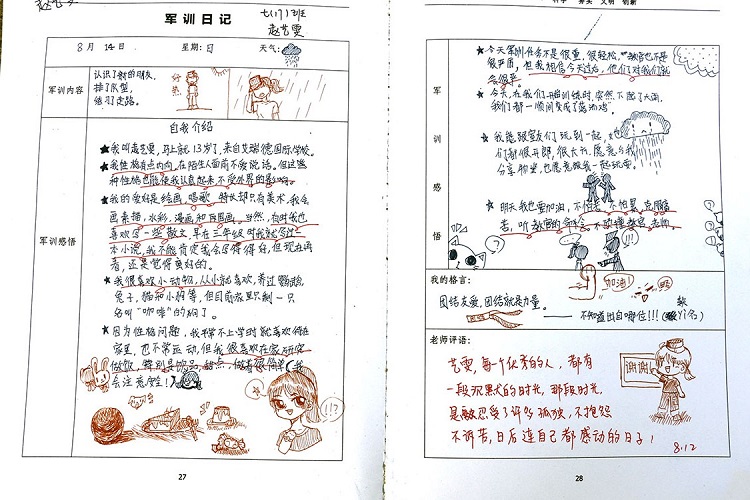 赵艺雯
军训日记
七(17)班
赵艺雯
8月14日
星期:日
天气:
军训内容
认识了新的朋友,
排了队型,
练习走路。
军训感悟
自我介绍
★我叫赵艺雯,马上就13岁了,来自艾瑞德国际学校。
★我性格有点内向,在陌生人面前不爱说话。但这些
种性格也能使我认真起来,不受外界的影响。
★我的爱好是绘画、唱歌,特长却只有美术,我会
画素描,水彩,漫画和国画,当然,有时我也
喜欢写一些散文,早在三年级时我就写过一
本小说,我不能肯定我会写得得好,但现在再
看,还是觉得蛮好的。
★我很喜欢小动物,从小就喜欢,养过鹦鹉,
兔子,猫和小狗等,但目前放里只剩一只
名叫"咖啡"的狗了。
★因为性格问题,我平常不上学时就喜欢待在
家里,也不常运动,但我很喜欢在家研究
做饭,特别是饮品,甜点,做有很简单(我
会注意安全!)
27
务实 文明 创新
★今天军训任务不是很重,很轻松,教官也不是
很严肃,但我相信今天过后,他们对我们就
会很严。
★今天,在我们开始训练时,突然下起了大雨,
我们都一瞬间变成了落汤鸡。
★我能跟室友们玩到一起,
们都很开朗,很大方,愿意与我
分享物品,也愿意跟我一起玩耍。
★明天我也要加油,不怕苦,不怕累,克服困
苦,听教官的命令,不顶撞教官,老师。
军训感悟
我的格言:
团结友爱,团结就是力量。
加油!
——不知道出自哪位!!!
老师评语:
艺雯,每个优秀的人,都有
一段沉默的时光,那段时光,
是敢忍受了许多孤独,不抱怨
不诉苦,日后连自己都感动的日子!
8.12
谢谢!
28